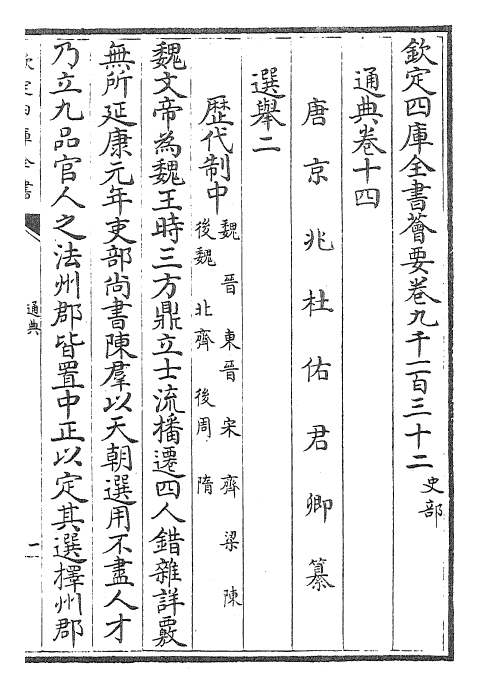 欽定四庫全書薈要卷九千一百三十二史部
通典卷十四
唐京兆杜佑君卿纂
選舉二
歷代制中魏晉東晉宋齊梁陳
後魏北齊後周隋
魏文帝為魏王時三方鼎立士流播遷四人錯雜詳覈
無所延康元年吏部尚書陳羣以天朝選用不盡人才
乃立九品官人之法州郡皆置中正以定其選擇州郡
欽定四庫全書
通典
一